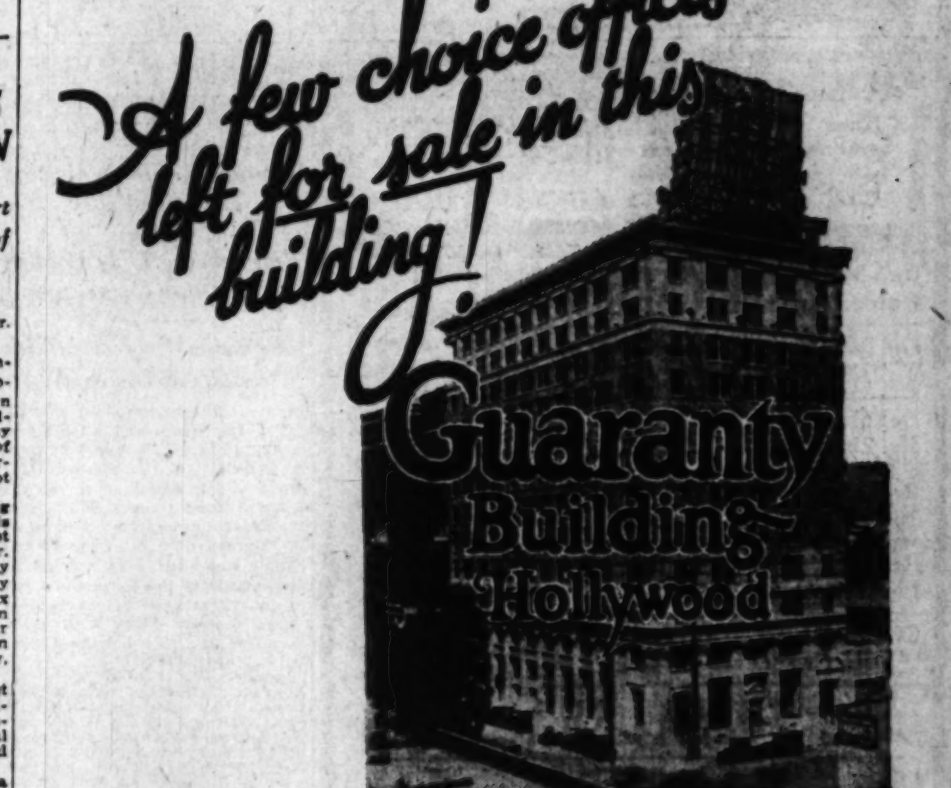 A few choice offices
left for sale in this
building!
Guaranty
Building
Hollywood